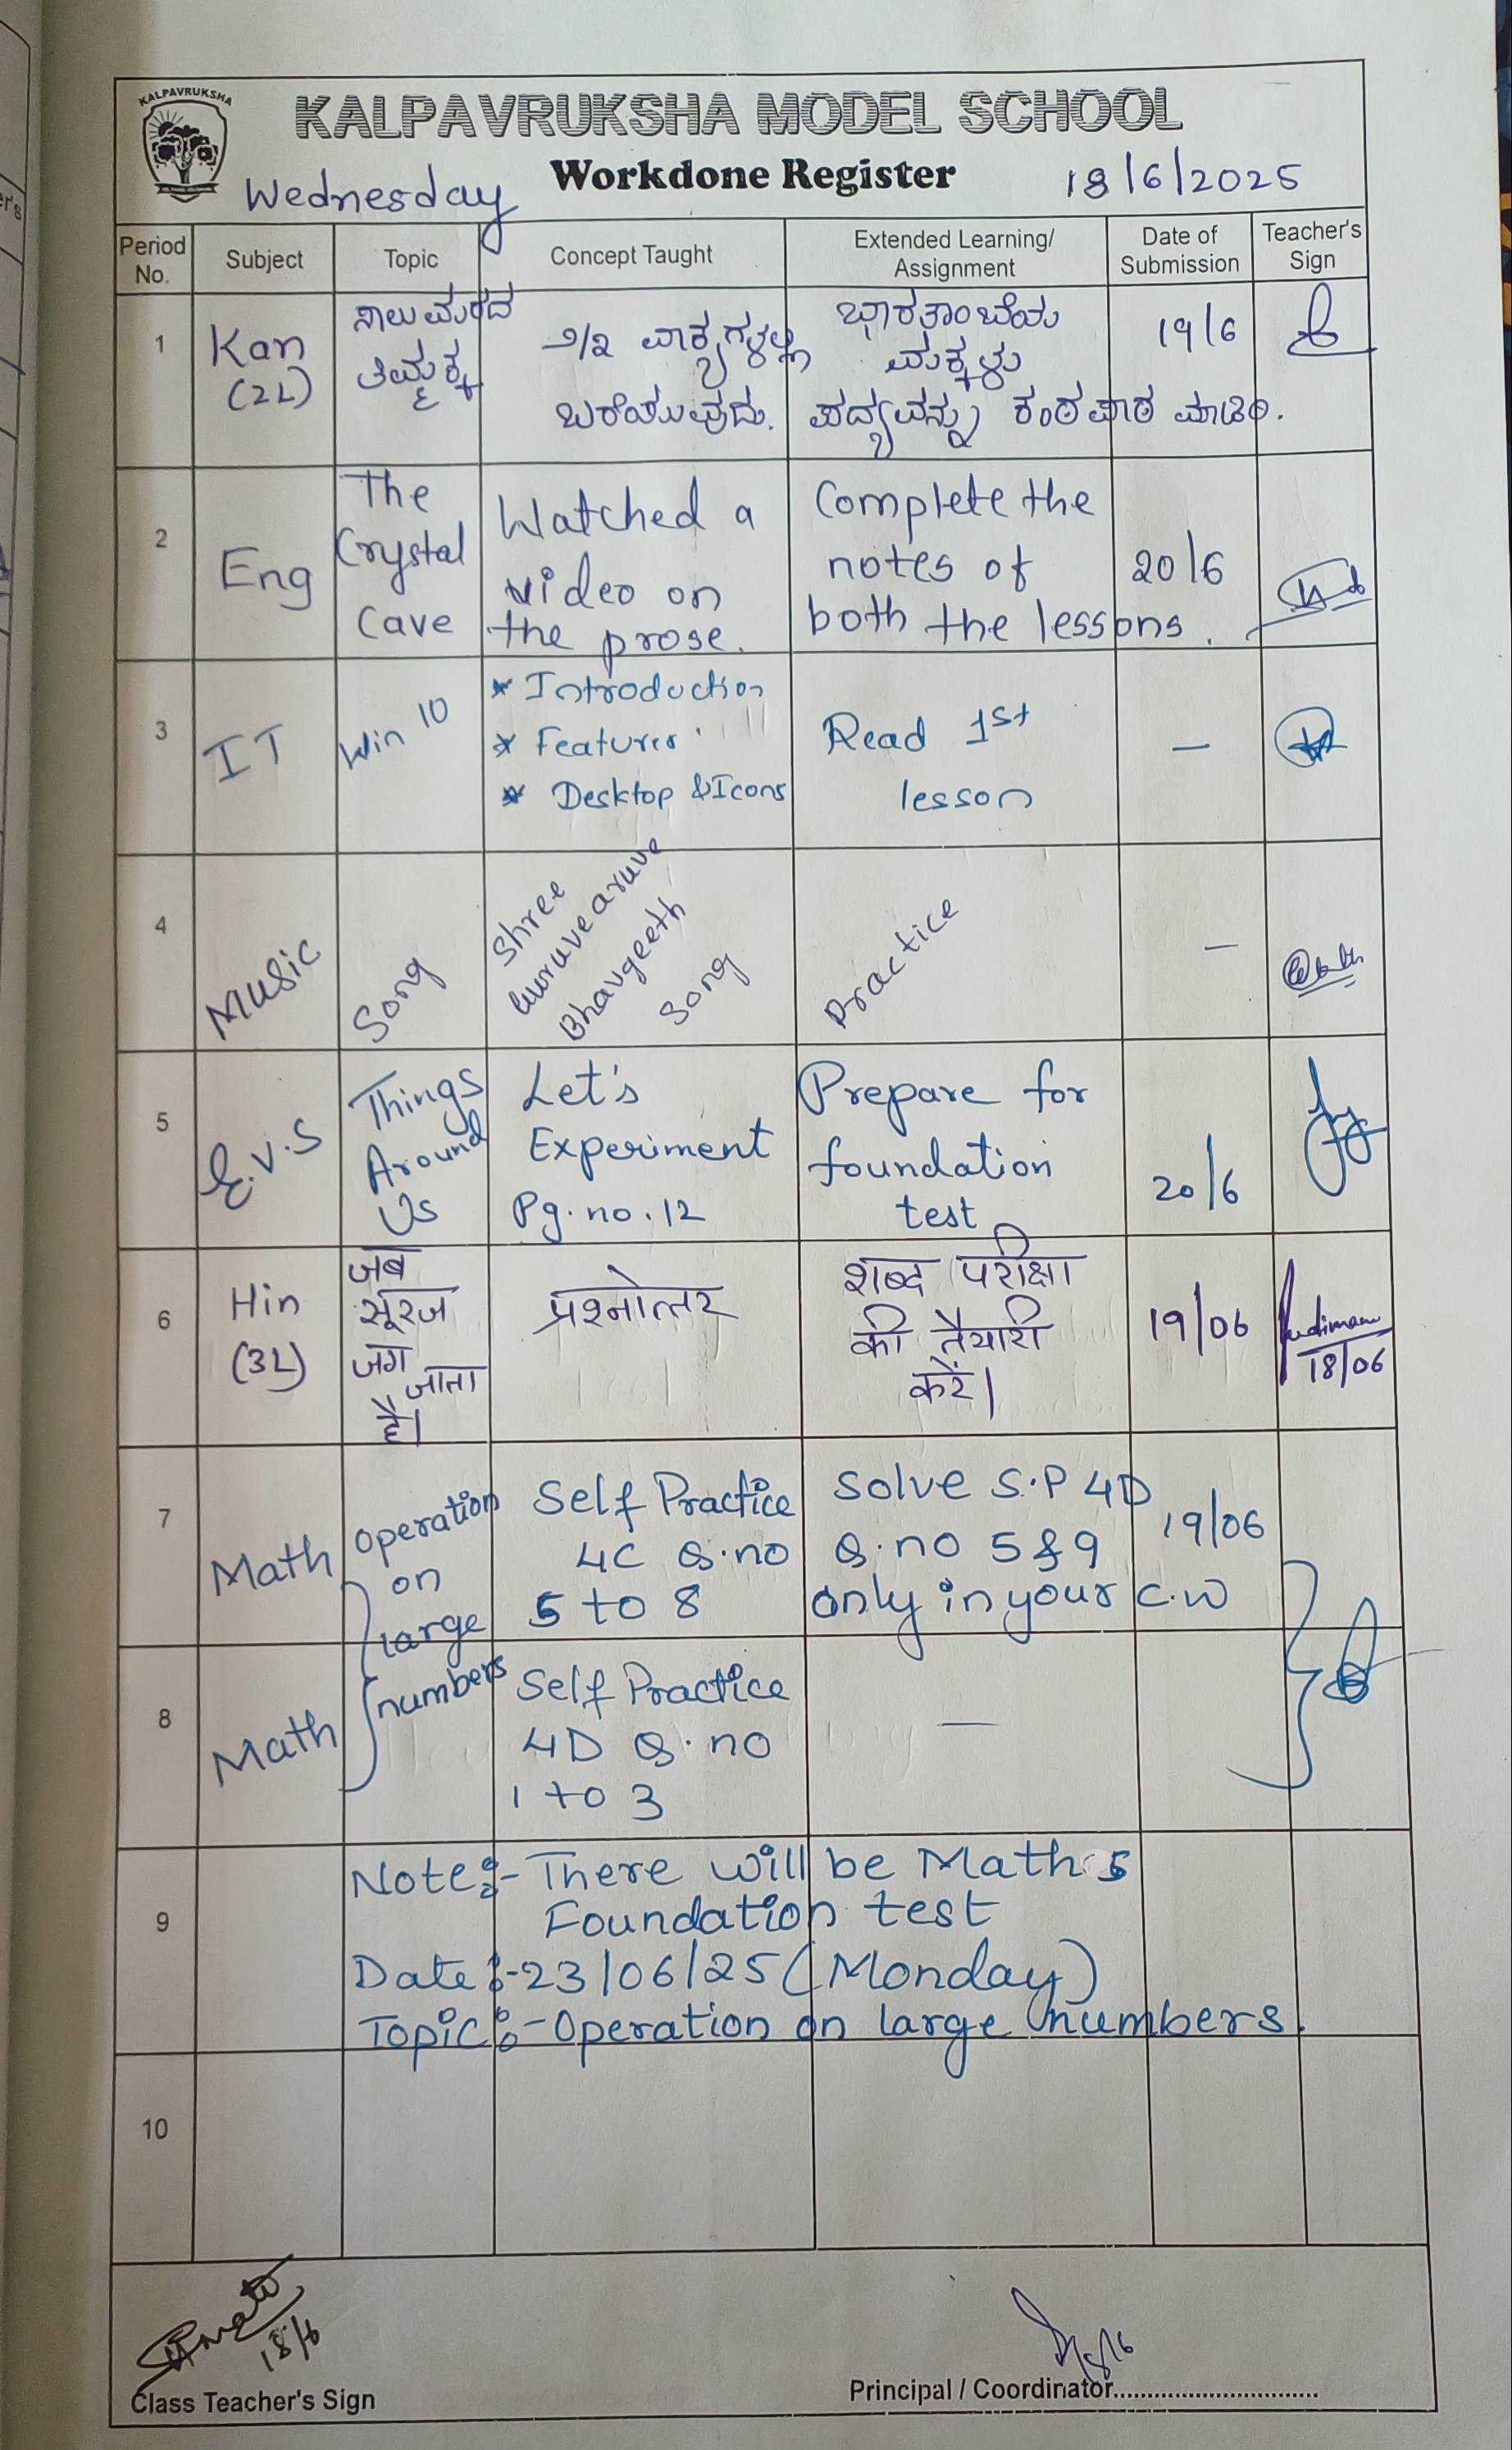 KALPAVRUKSHA
KALPAVRUKSHA MODEL SCHOOL
Workdone Register
Wednesday
18/6/2025
Period No.
Subject
Topic
Concept Taught
Extended Learning/ Assignment
Date of Submission
Teacher's Sign
1
Kan
(2L)
ಸಾಲುಮರದ
ತಿಮ್ಮಕ್ಕ
೨/೩ ವಾಕ್ಯಗಳಲ್ಲಿ
ಬರೆಯುವುದು.
ಭಾರತಾಂಬೆಯ
ಮಕ್ಕಳು
ಪದ್ಯವನ್ನು ಕಂಠಪಾಠ ಮಾಡಿರಿ.
19/6
2
Eng
The
Crystal
Cave
Watched a
video on
the prose.
Complete the
notes of
both the lessons.
20/6
3
IT
Win 10
* Introduction
* Features
* Desktop & Icons
Read 1st
lesson
—
4
Music
Song
Shree
Bhavgeeth
Song
Practice
—
5
E.V.S
Things
Around
Us
Let's
Experiment
Pg. no. 12
Prepare for
foundation
test
20/6
6
Hin
(3L)
जब
सूरज
जग
जाता
है।
प्रश्नोत्तर
शब्द परीक्षा
की तैयारी
करें।
19/06
18/06
7
Math
Operation
on
large
numbers
Self Practice
4C Q.no
5 to 8
Solve S.P 4D
Q.no 5 & 9
only in your C.W
19/06
8
Math
Self Practice
4D Q.no
1 to 3
—
9
Note:- There will be Maths
Foundation test
Date:- 23/06/25 (Monday)
Topic:- Operation on large numbers.
10
18/6
Class Teacher's Sign
18/6
Principal / Coordinator..............................